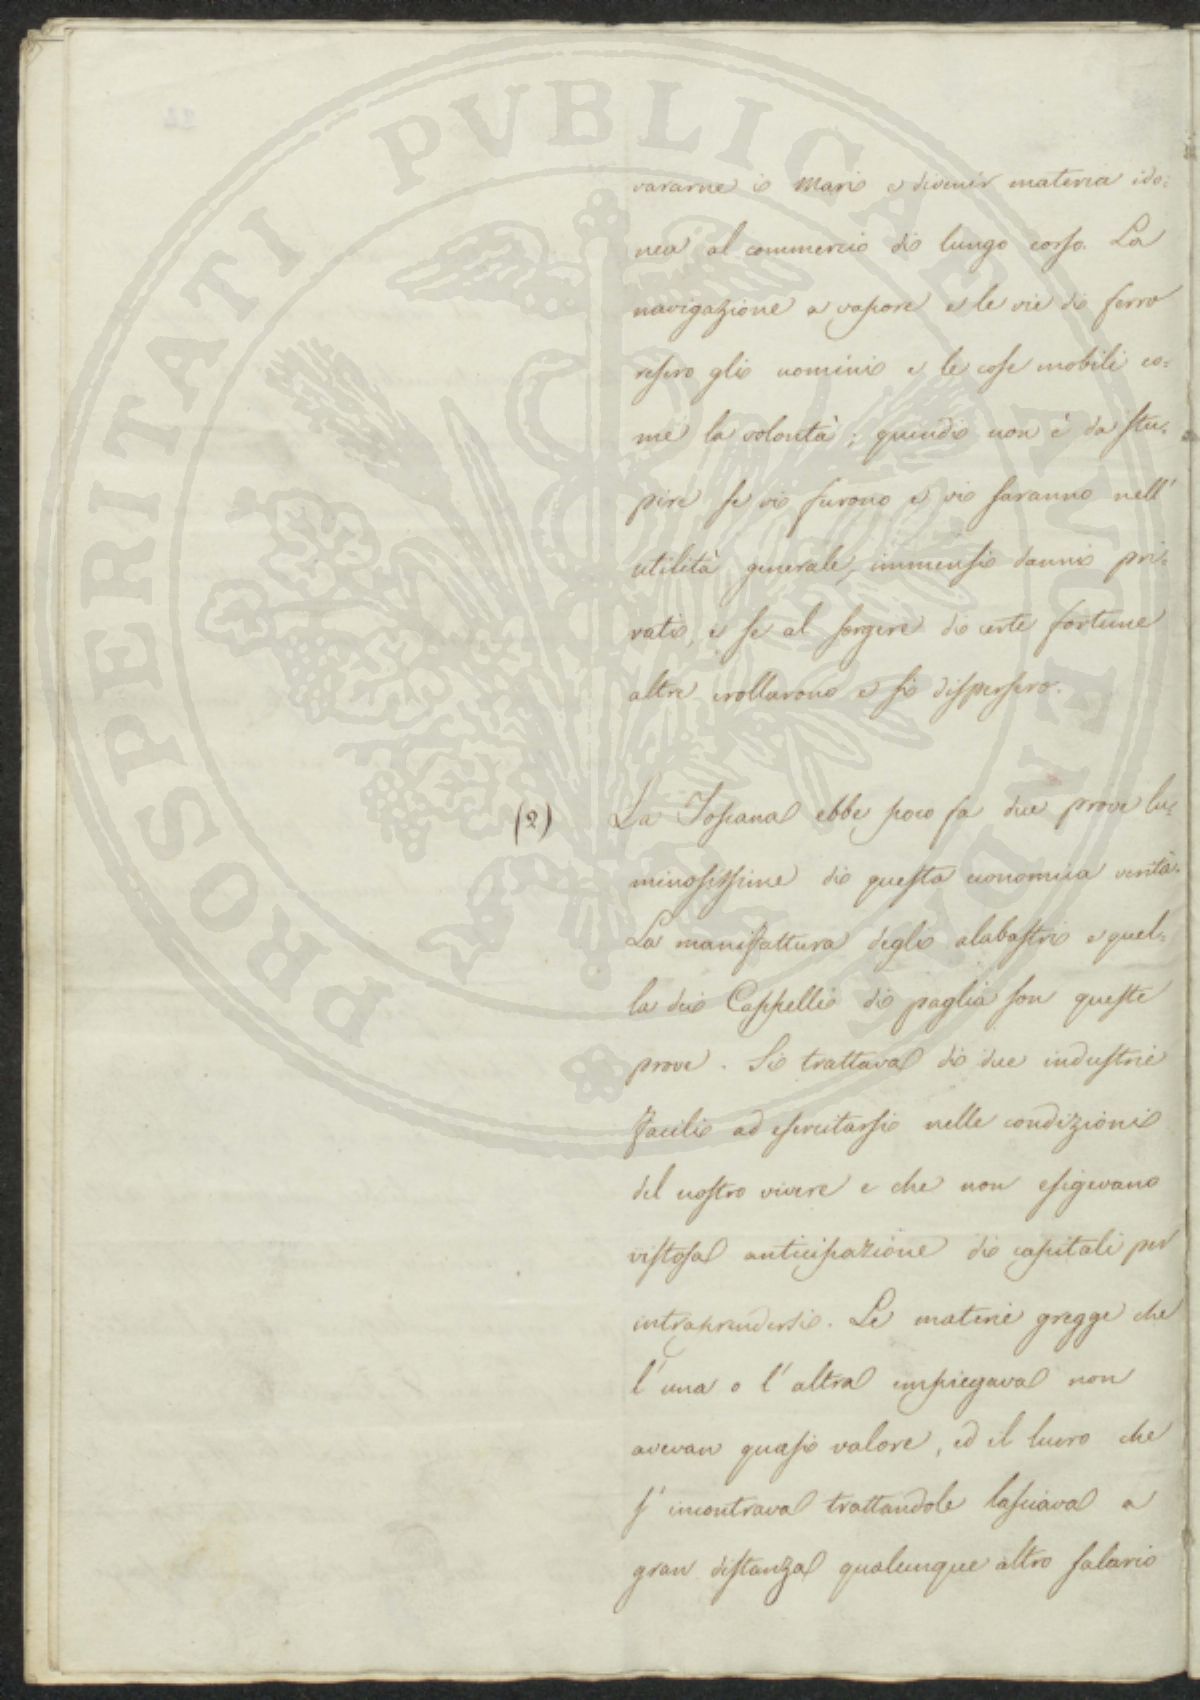 vararne i Mari e divenir materia ido=
nea al commercio di lungo corso. La
navigazione a vapore e le vie di ferro
resero gli uomini e le cose mobili co=
me la volontà; quindi non è da stu=
pire se vi furono e vi saranno nell'
utilità generale, immensi danni pri=
vati, e se al sorgere di certe fortune
altre crollarono e si dispersero.
(2) La Toscana ebbe poco fa due prove lu=
minosissime di questa economica verità.
La manifattura degli alabastri e quel=
la dei Cappelli di paglia son queste
prove. Si trattava di due industrie
facili ad esercitarsi nelle condizioni
del nostro vivere e che non esigevano
vistosa anticipazione di capitali per
intraprendersi. Le materie gregge che
l'una o l'altra impiegava non
avevan quasi valore, ed il lucro che
s'incontrava trattandole lasciava a
gran distanza qualunque altro salario
PROSPERITATI PVBLICAE AVGENDAE
22